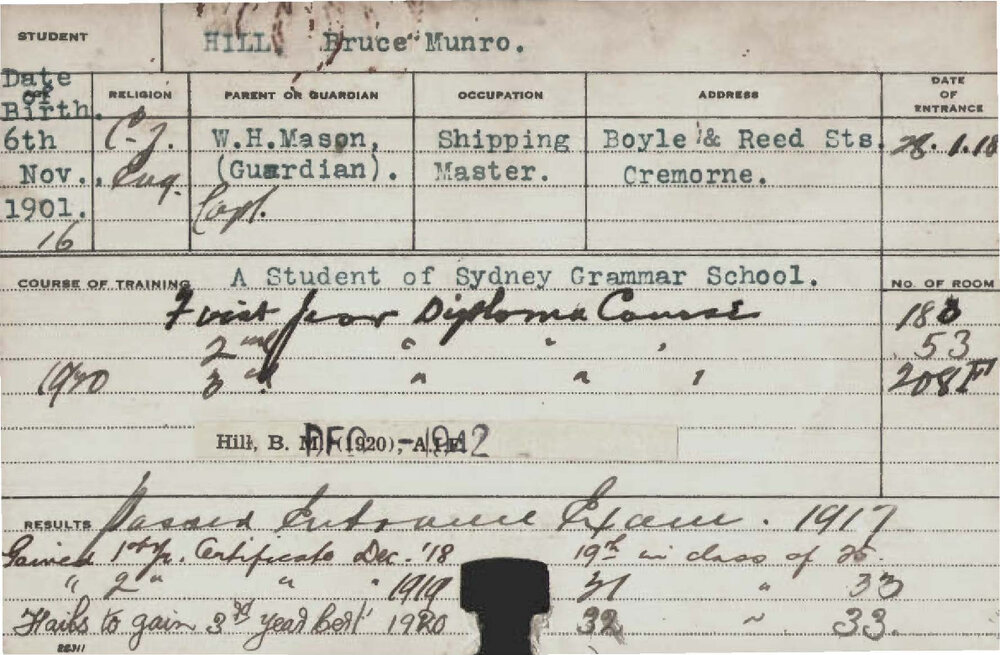 STUDENT HILL, Bruce Munro.
Date of Birth. RELIGION PARENT OR GUARDIAN OCCUPATION ADDRESS DATE OF ENTRANCE
6th W.H.Mason, Shipping Boyle & Reed Sts. 28.1.18
Nov., Eng. (Guardian). Master. Cremorne.
1901. Capt.
16
COURSE OF TRAINING A Student of Sydney Grammar School. NO. OF ROOM
First year Diploma Course 183
2nd " " " 53
1920 3rd " " " 208F
Hill, B. M. (1920), A.I.E. DEC -1942
RESULTS Passed Entrance Exam. 1917
Gained 1st yr. Certificate Dec. '18 19th in class of 25.
" 2" " " 1919 31 " 33
Fails to gain 3rd year cert 1920 32 " 33.
22311